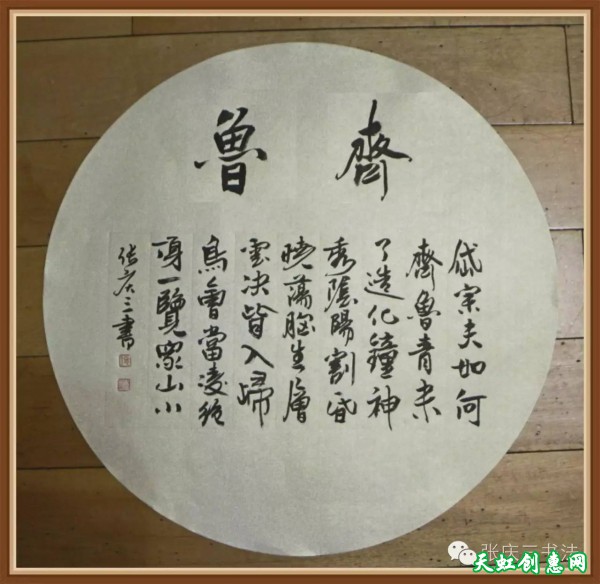 齊魯
岱宗夫如何
齊魯青未
了造化鐘神
秀陰陽割昏
曉蕩胸生層
雲決眥入歸
鳥會當凌絕
頂一覽眾山小
张庆三書
张庆三书法
天虹创惠网